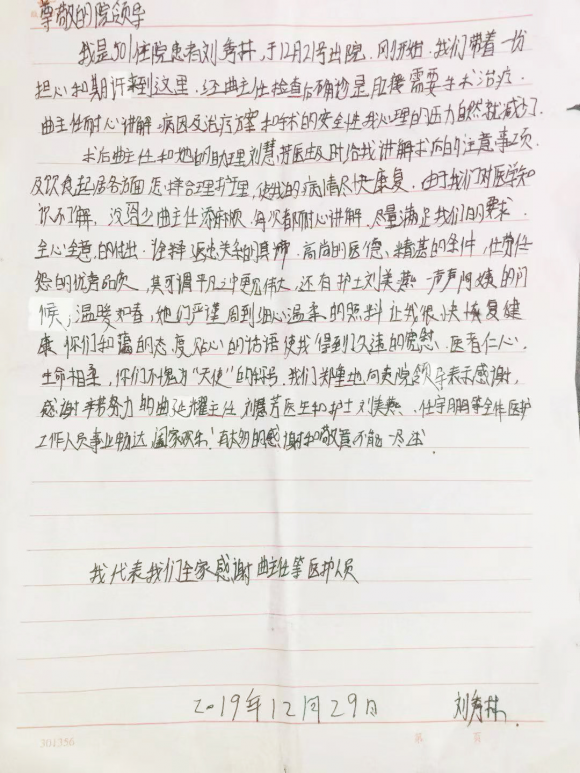 尊敬的院领导
我是501住院患者刘秀林，于12月21号出院，刚开始，我们带着一份
担心和期许来到这里，经曲主任检查后确诊是肛瘘需要手术治疗，
曲主任耐心讲解病因及治疗方案和手术的安全性我心理的压力自然就减少了
术后曲主任和她的助理刘慧芳医生及时给我讲解术后的注意事项
及饮食起居各方面怎样合理护理，使我的病情尽快康复，由于我们对医学知
识不了解，没少曲主任添麻烦，每次都耐心讲解，尽量满足我们的要求
全心全意的付出，高尚的医德、精湛的，任劳任
怨的优秀品质，其可谓平凡之中更见伟大，还有护士刘美燕一声声阿姨的问
候，温暖如春，她们严谨周到细心温柔的照料让我很快恢复健
康，你们和蔼的态度贴心的话语使我得到久违的宽慰，医者仁心，
生命相托，你们不愧为“天使”的称号，我们郑重地向贵院领导表示感谢，
感谢辛苦努力的曲延耀主任刘慧芳医生和护士刘美燕、任守朋等全体医护
工作人员事业畅达阖家欢乐！有太多的感谢和敬意不能一一尽述
我代表我们全家感谢曲主任等医护人员
2019年12月29日 刘秀林
301356 第 页